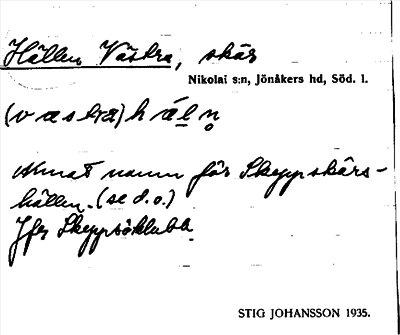 Hällen Västra, skär
Nikolai s:n, Jönåkers hd, Söd. l.
(västra) häln
Annat namn för Skeppskärs-
hällen. (se d.o.)
Jfr Skeppsöklubb
STIG JOHANSSON 1935.